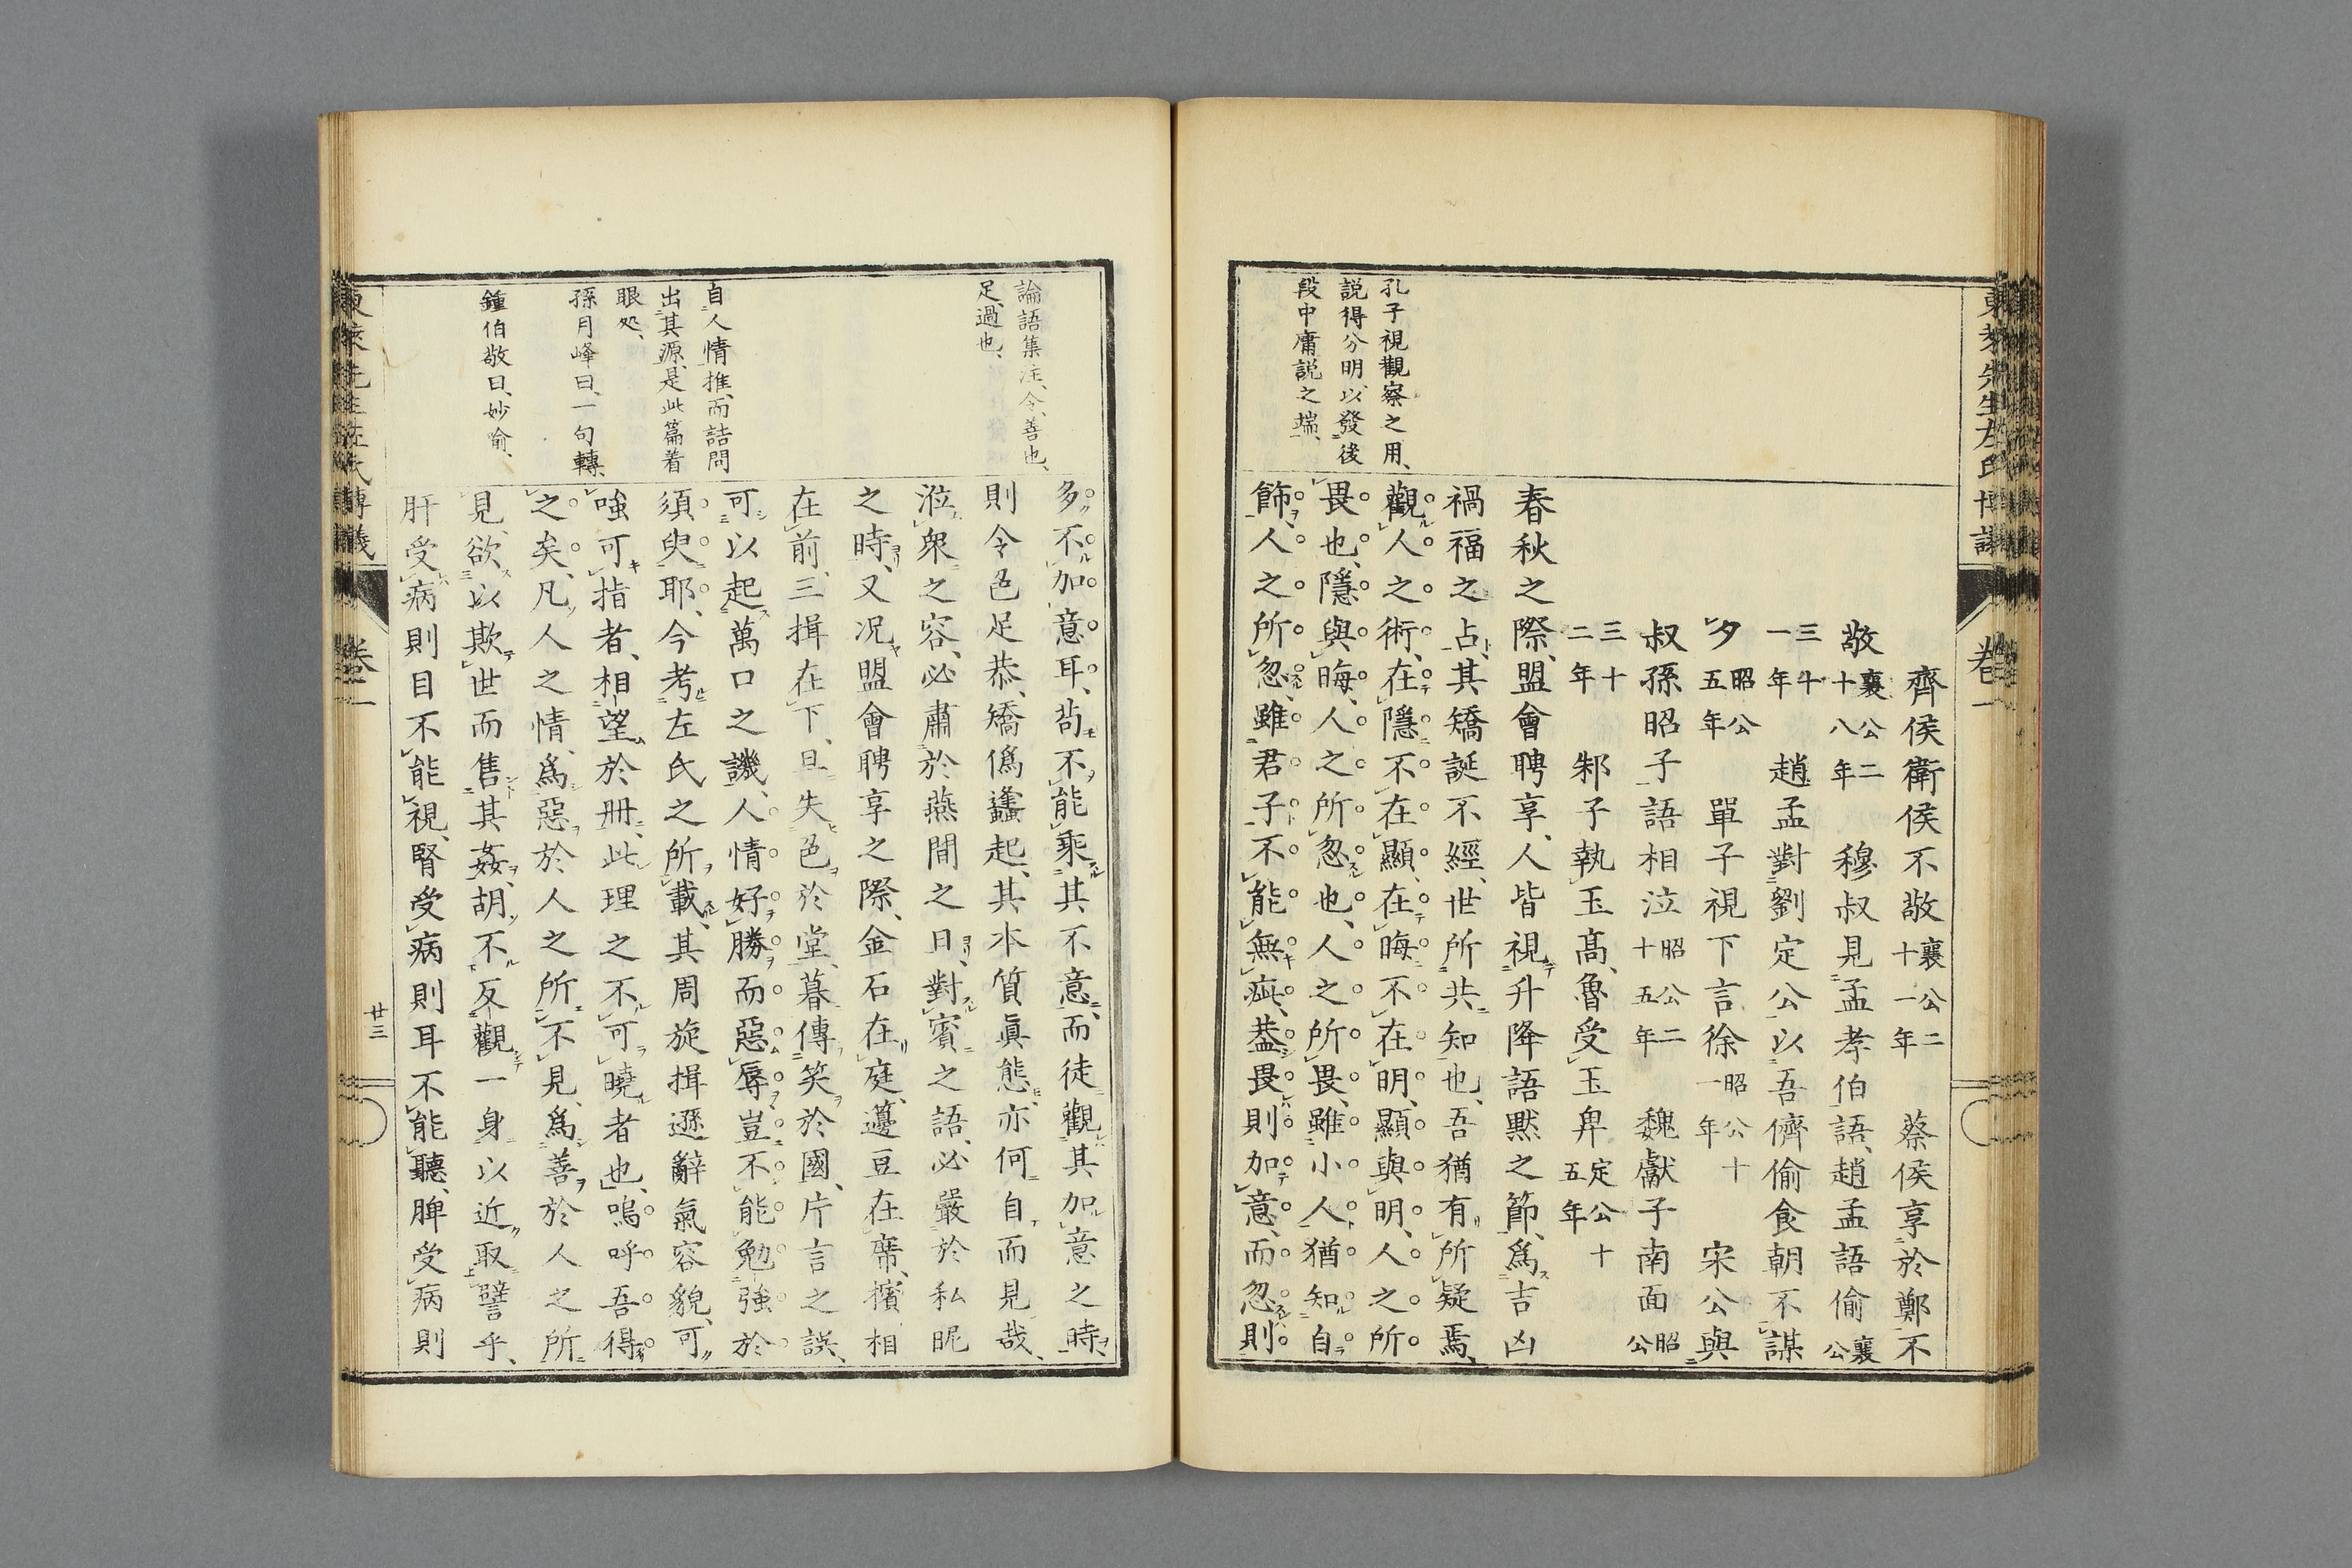 東萊先生左氏博議
卷一
齊侯衛侯不敬襄公二十一年　蔡侯享於鄭不
敬襄公二十八年　穆叔見孟孝伯語趙孟語偷襄公
三十一年　趙孟對劉定公以吾儕偷食朝不謀
夕昭公五年　單子視下言徐昭公十一年　宋公與
叔孫昭子語相泣昭公二十五年　魏獻子南面昭公
三十二年　邾子執玉高、魯受玉卑定公十五年
春秋之際、盟會聘享、人皆視升降語默之節、爲吉凶
禍福之占、其矯誕不經、世所共知也、吾猶有所疑焉、
觀人之術、在隱不在顯、在晦不在明、顯與明、人之所
畏也、隱與晦、人之所忽也、人之所畏、雖小人猶知自
飾、人之所忽、雖君子不能無疵、葢畏則加意、而忽則
孔子視觀察之用、
説得分明、以發後
段中庸説之端、
多不加意耳、苟不能乘其不意、而徒觀其加意之時、
則令色足恭、矯僞蠭起、其本質眞態、亦何自而見哉、
涖衆之容、必肅於燕閒之日、對賓之語、必嚴於私昵
之時、又况盟會聘享之際、金石在庭、籩豆在席、擯相
在前、三揖在下、旦失色於堂、暮傳笑於國、片言之誤、
可以起萬口之譏、人情好勝而惡辱、豈不能勉強於
須臾耶、今考左氏之所載、其周旋揖遜辭氣容貌、可
嗤可指者、相望於册、此理之不可曉者也、嗚呼吾得
之矣、凡人之情、爲惡於人之所不見、爲善於人之所
見、欲以欺世而售其姦、胡不反觀一身以近取譬乎、
肝受病則目不能視、腎受病則耳不能聽、脾受病則
論語集注、令、善也、
足、過也、
自人情推、而詰問
出其源、是此篇着
眼処、
孫月峰曰、一句轉
鍾伯敬曰、妙喻、
卷一
廿三